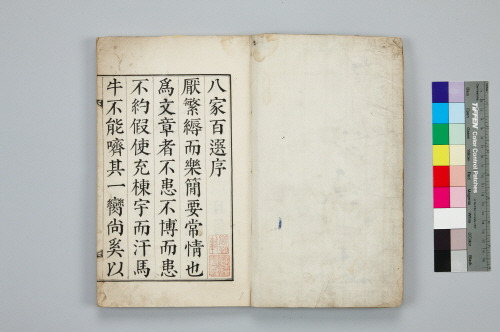 八家百選序
厭繁縟而樂簡要常情也
爲文章者不患不博而患
不約假使充棟宇而汗馬
牛不能嚌其一臠尚奚以
TIFFEN Color Control Patches